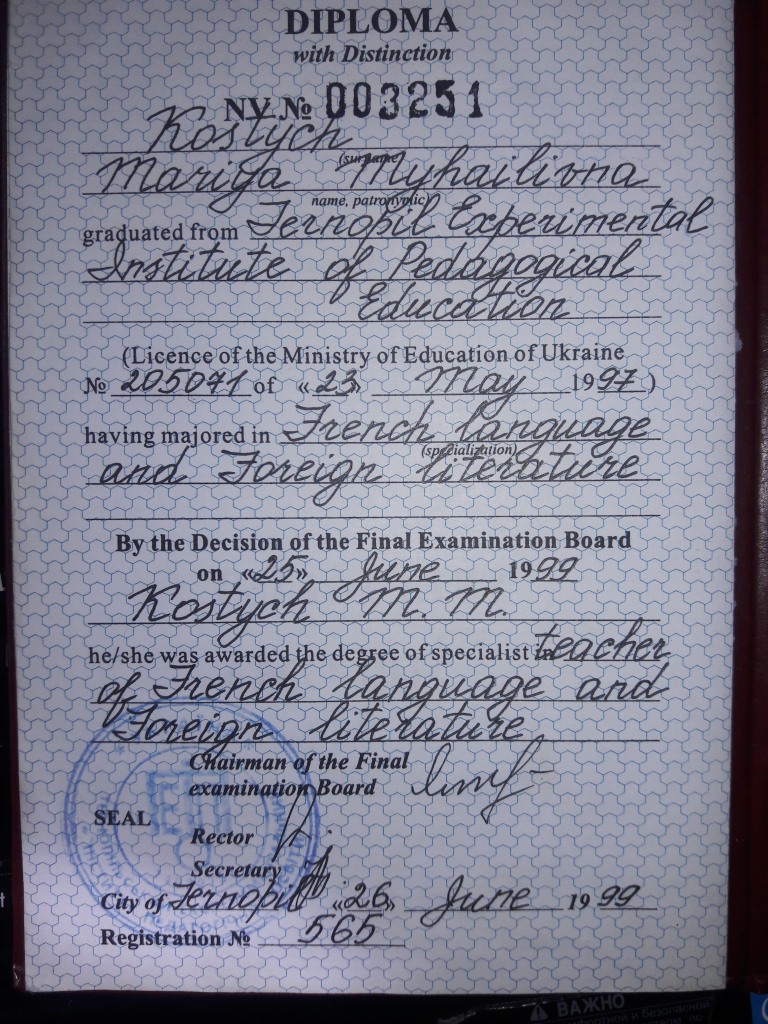 DIPLOMA
with Distinction
NV № 003251
Kostych
(surname)
Mariya Myhailivna
name, patronymic)
graduated from Ternopil Experimental
Institute of Pedagogical
Education
(Licence of the Ministry of Education of Ukraine
№ 205071 of «23» May 1997)
having majored in French language
(specialization)
and Foreign literature
By the Decision of the Final Examination Board
on «25» June 1999
Kostych M. M.
he/she was awarded the degree of specialist in teacher
of French language and
Foreign literature
Chairman of the Final
examination Board
SEAL
Rector
Secretary
City of Ternopil «26» June 1999
Registration № 565
ВАЖНО